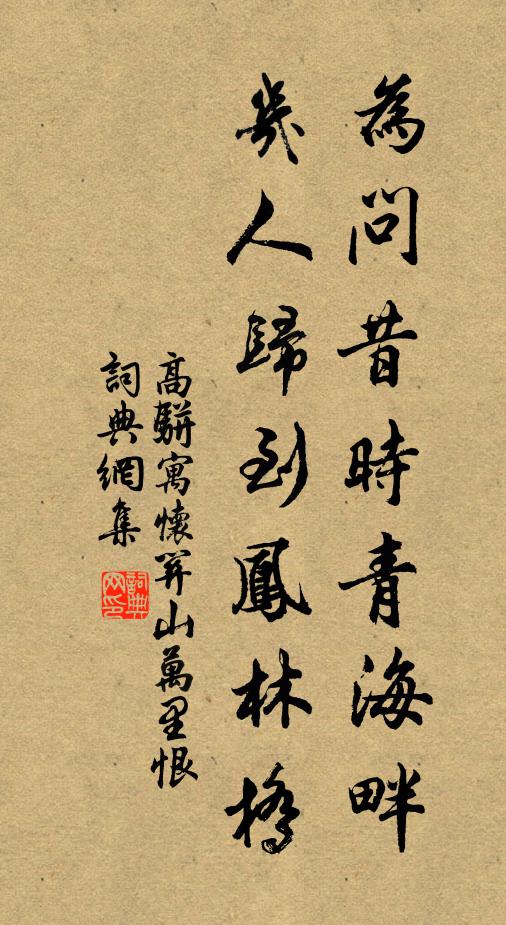 為問昔時青海畔
幾人歸到鳳林橋
高駢寓懷關山萬里恨
詞典網集
詞典网印